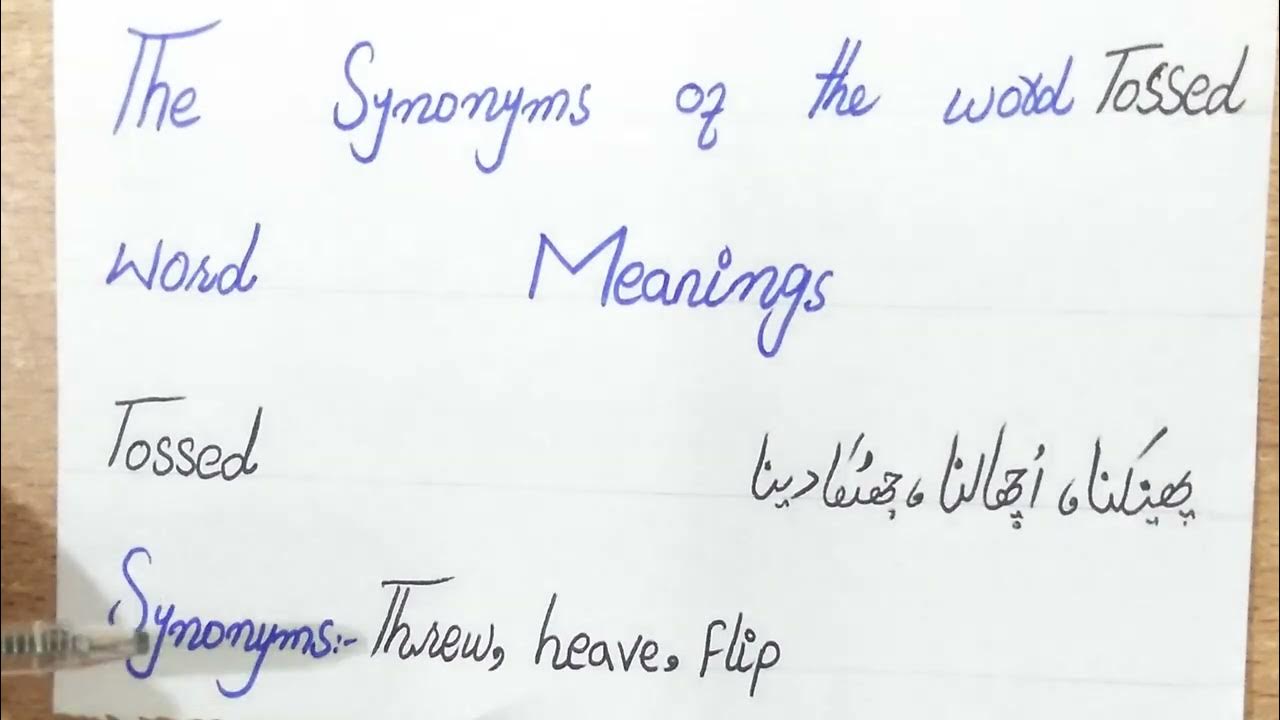 The Synonyms of the word Tossed
Word Meanings
Tossed پھینکنا، اُچھالنا، جھٹکا دینا
Synonyms:- Threw, heave, flip